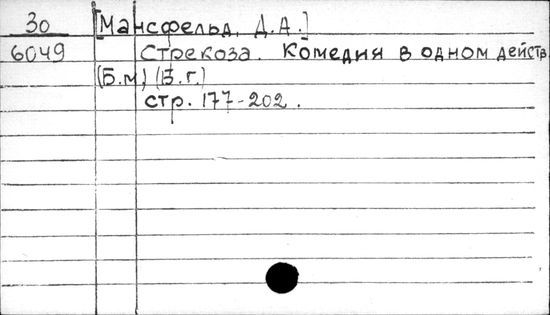 30 [Мансфельд, Д.А.]
6049 Стрекоза. Комедия в одном действ.
(Б.м) (Б.г.)
стр. 177-202.